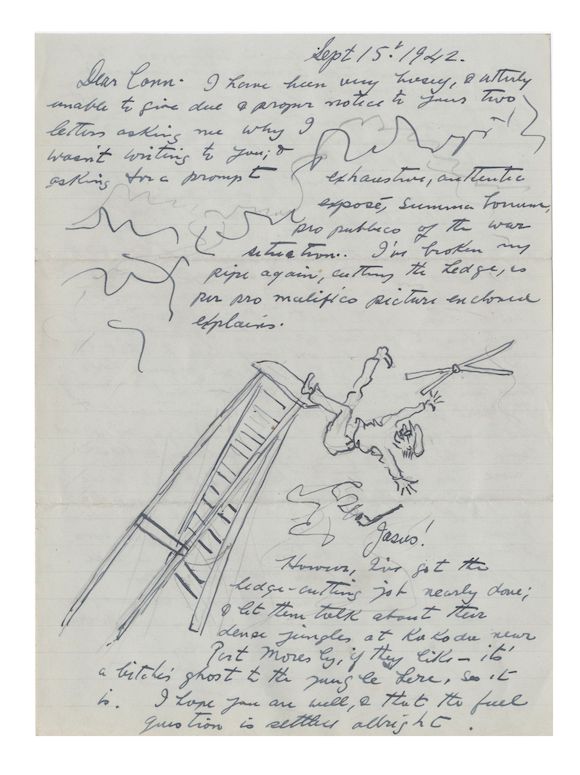 Sept 15. 1942.
Dear Conn. I have been very busy, & utterly
unable to give due & proper notice to your two
letters asking me why I
wasn't writing to you; &
asking for a prompt
exhaustive, authentic
exposé, summa bonum,
pro publico of the war
situation.. I've broken my
pipe again, cutting the hedge, as
per pro malifico picture enclosed
explains.
Jasus!
However, I've got the
hedge-cutting job nearly done;
& let them talk about their
dense jungles at Kokoda near
Port Moresby, if they like – its'
a bitch's ghost to the jungle here, so it
is. I hope you are well, & that the fuel
question is settled allright.